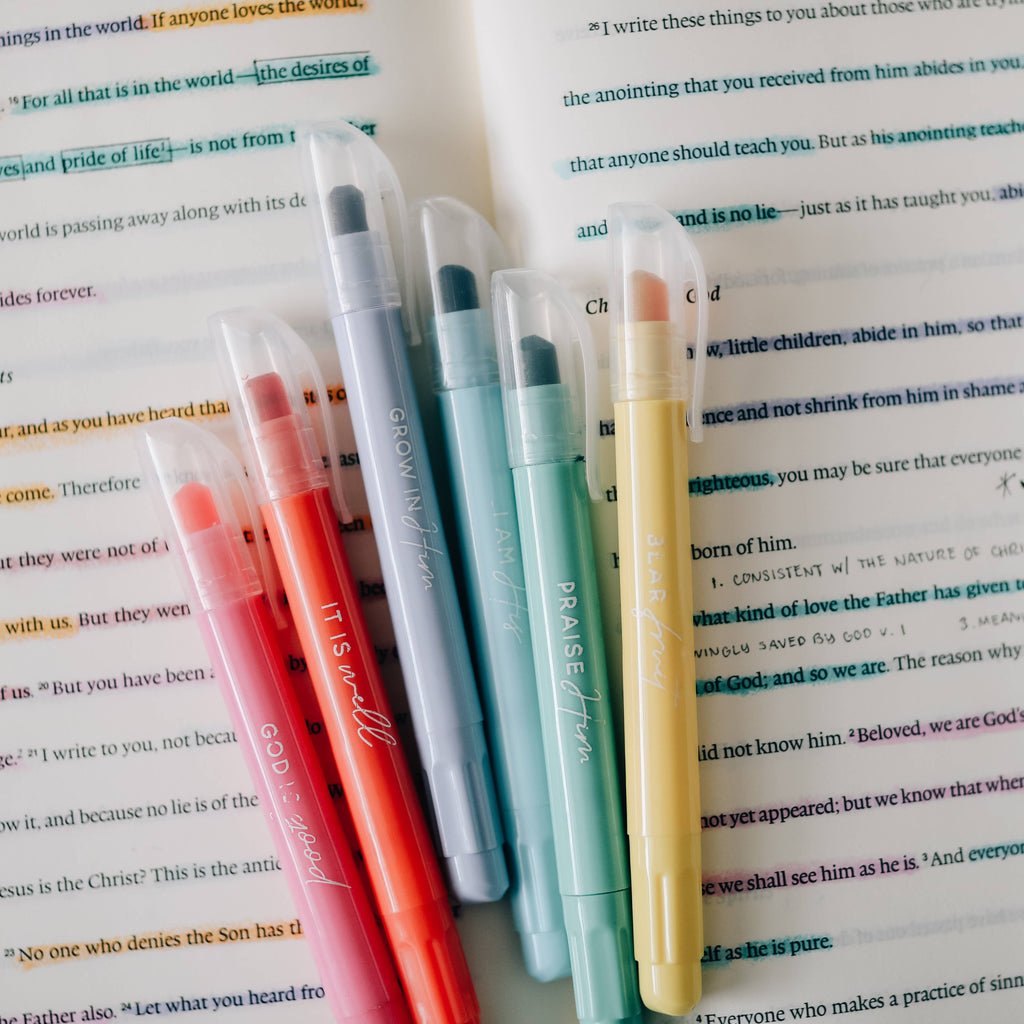 ings in the world. If anyone loves the world,
¹⁶For all that is in the world—the desires of
yes and pride of life¹—is not from
world is passing away along with its
ides forever.
ts
ar, and as you have heard that
come. Therefore
ut they were not of
with us. But they
of us. ²⁰But you have been
ge.² ²¹I write to you, not
ow it, and because no lie is of the
esus is the Christ? This is the
²³No one who denies the Son has
he Father also. ²⁴Let what you heard
²⁶I write these things to you about those who are
the anointing that you received from him abides in you,
that anyone should teach you. But as his anointing
and and is no lie—just as it has taught you,
God
little children, abide in him, so that
and not shrink from him in shame
righteous, you may be sure that everyone
born of him.
1. CONSISTENT W/ THE NATURE OF
what kind of love the Father has given
SAVED BY GOD V. 1 3.
of God; and so we are. The reason why
did not know him. ²Beloved, we are God's
not yet appeared; but we know that when
we shall see him as he is. ³And
elf as he is pure.
⁴Everyone who makes a practice of
GOD IS good
IT IS well
GROW IN Him
I AM His
PRAISE Him